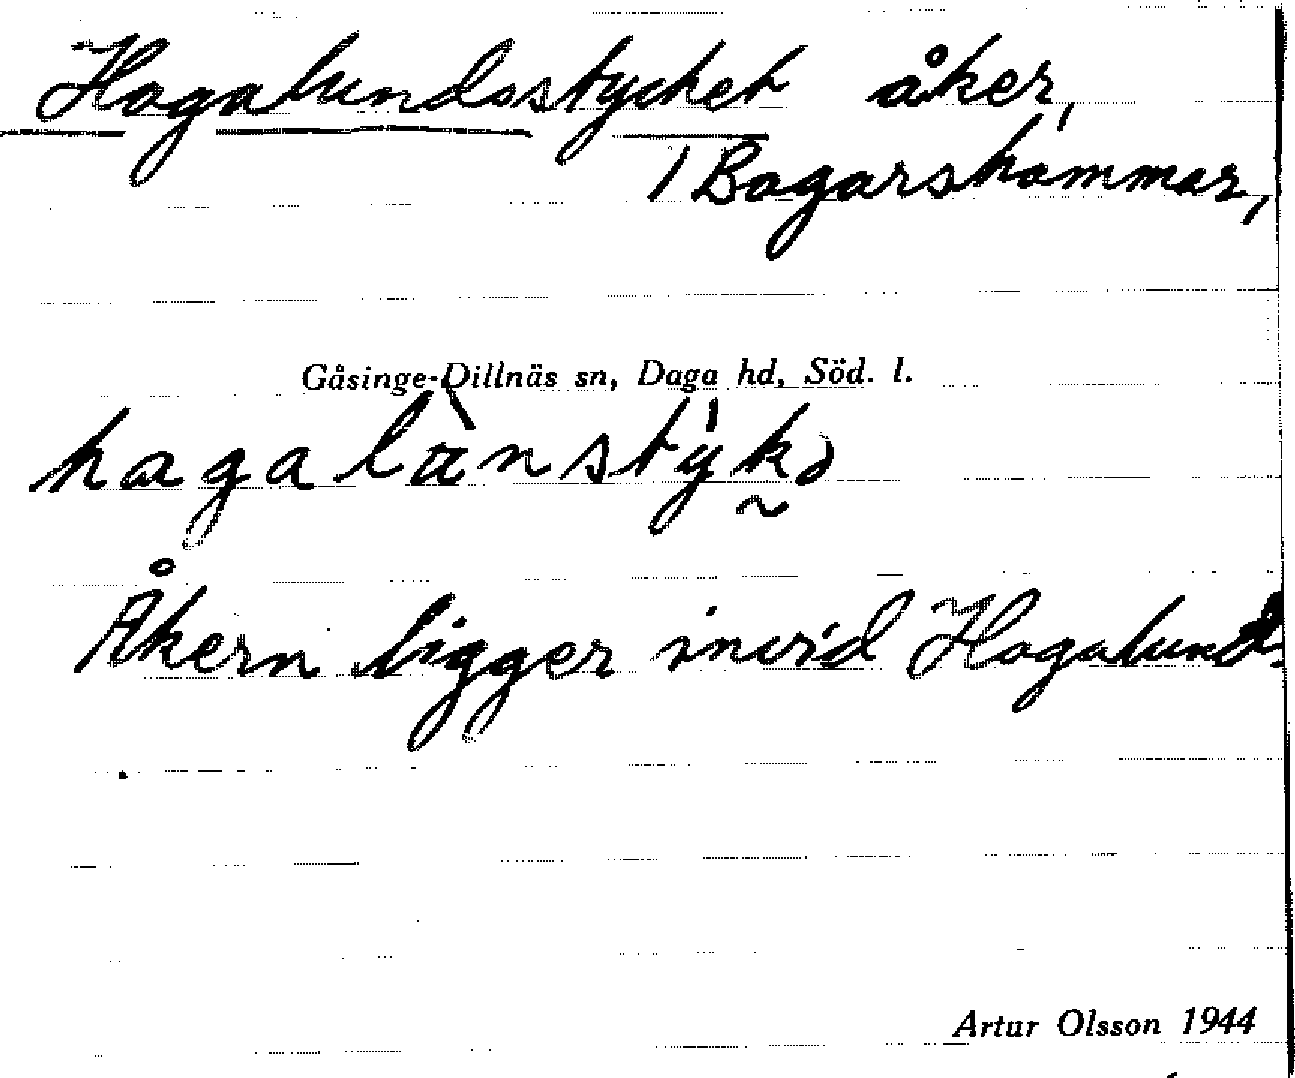 Hagalundsstycket åker,
1 Bagarshammar,
Gåsinge-Dillnäs sn, Daga hd, Söd. l.
Åkern ligger invid Hagalund.
Artur Olsson 1944